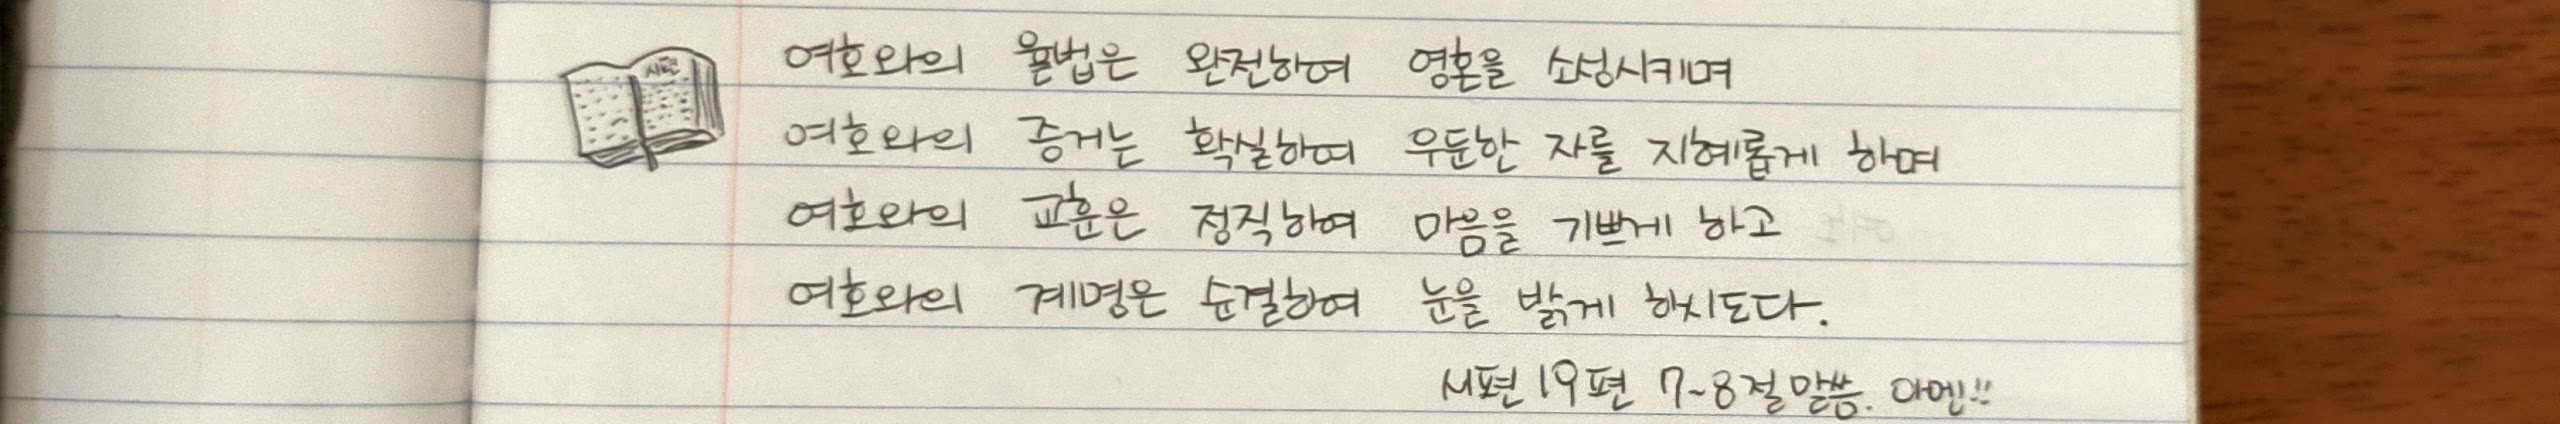 여호와의 율법은 완전하여 영혼을 소성시키며
여호와의 증거는 확실하여 우둔한 자를 지혜롭게 하며
여호와의 교훈은 정직하여 마음을 기쁘게 하고
여호와의 계명은 순결하여 눈을 밝게 하시도다.
시편 19편 7~8절 말씀. 아멘!!